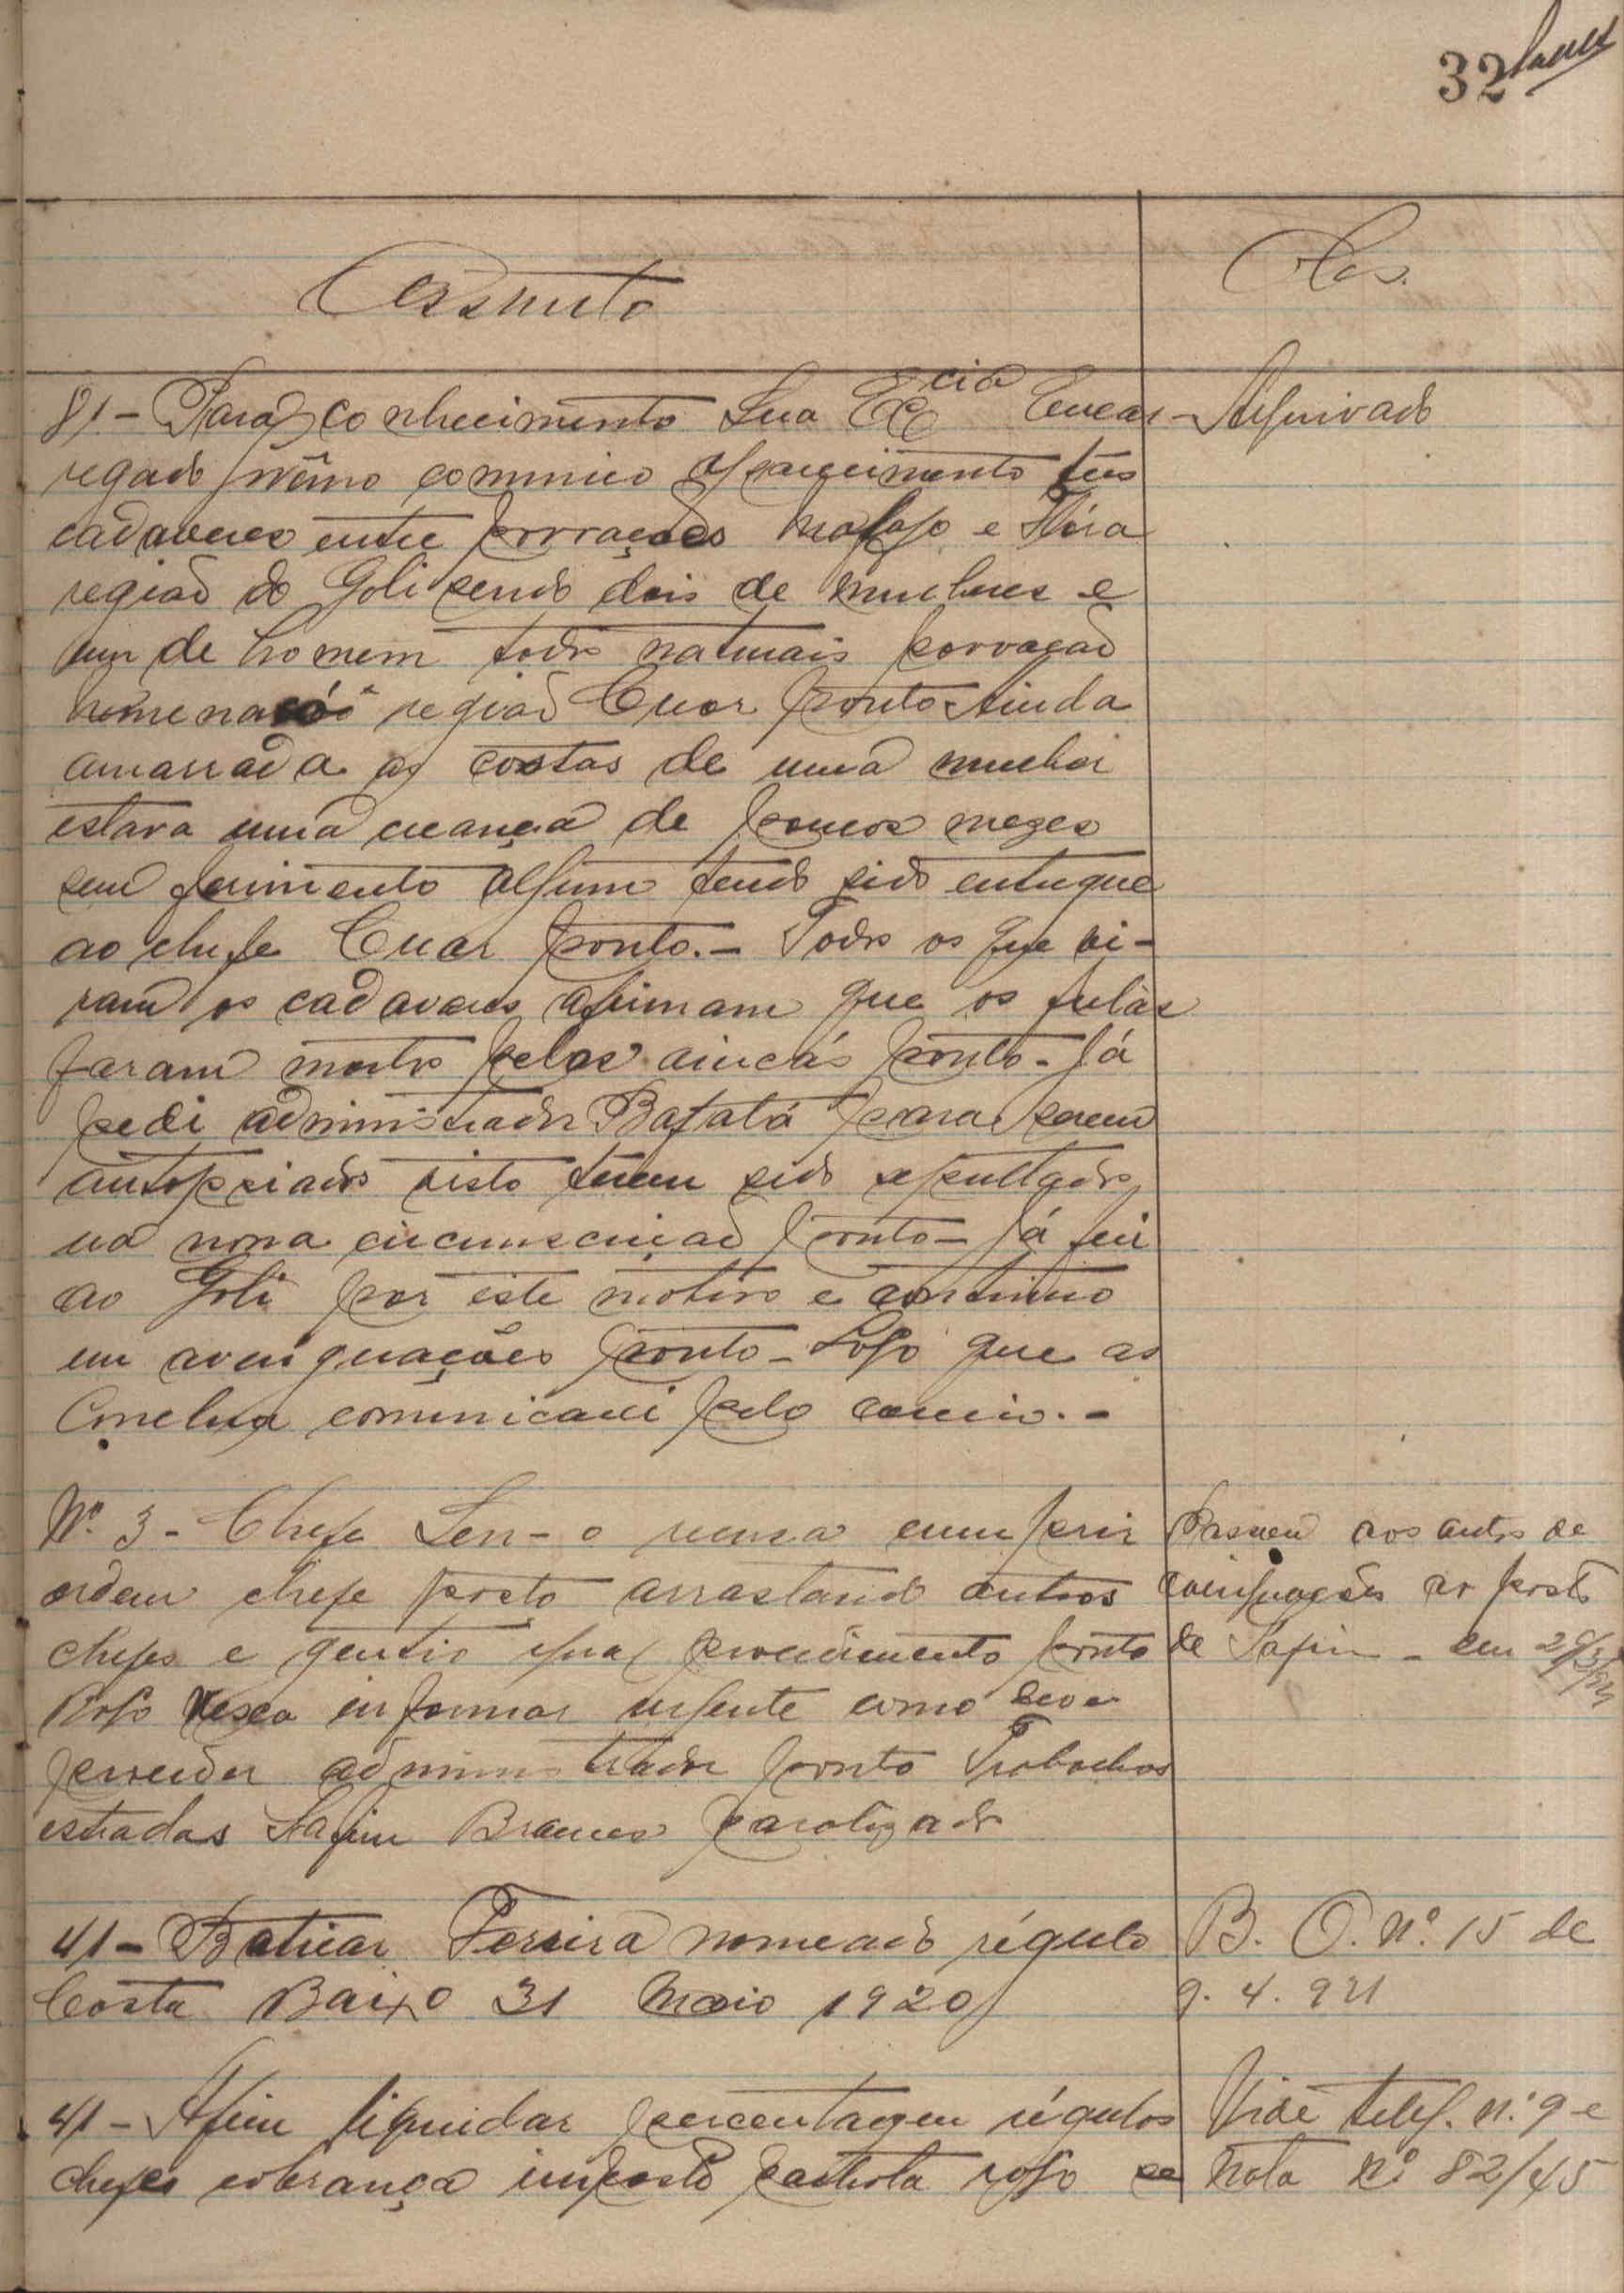 32
Assunto
Obs.
81 - Para conhecimento Sua Ex.cia Encar-
Arquivado
regado comunico aparecimento tres
cadaveres entre povoações Mafafo e
região do Goli sendo dois de mulheres e
um de homem todos naturais povoação
região Cuor ponto Ainda
amarrada as costas de uma mulher
estava uma creança de poucos mezes
sem ferimento algum tendo sido entregue
ao chefe Cuor ponto. - Todos os que vi-
ram os cadaveres afirmam que os fulas
foram mortos pelos ponto - Já
pedi administrador Bafatá para serem
autopsiados visto terem sido sepultados
na nova circunscrição ponto - Já fui
ao Goli por este motivo e continuo
em averiguações ponto - Logo que as
conclua comunicarei pelo correio. -
Nº 3 - Chefe recusa cumprir
Passou aos autos de
ordem chefe posto arrastando outros
averiguações ao posto
chefes e gentio igual procedimento ponto
de Safim - em
Rogo Vexa informar urgente como deve
proceder administrador ponto Trabalhos
estradas Safim paralizados
41 - Batican Ferreira nomeado régulo
B. O. Nº 15 de
Costa Baixo 31 Maio 1920
9. 4. 921
41 - Afim liquidar percentagem régulos
Vide teleg. nº 9 e
chefes cobrança imposto palhota rogo se
Nota Nº 82/45